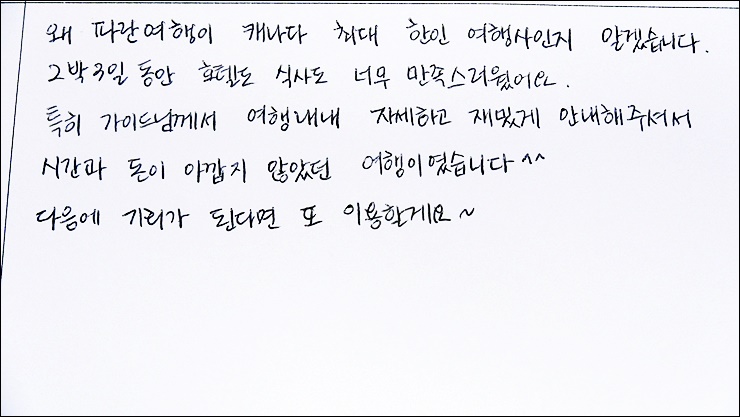 왜 파란여행이 캐나다 최대 한인 여행사인지 알겠습니다.
2박3일 동안 호텔도 식사도 너무 만족스러웠어요.
특히 가이드님께서 여행내내 자세하고 재밌게 안내해주셔서
시간과 돈이 아깝지 않았던 여행이였습니다^^
다음에 기회가 된다면 또 이용할게요~